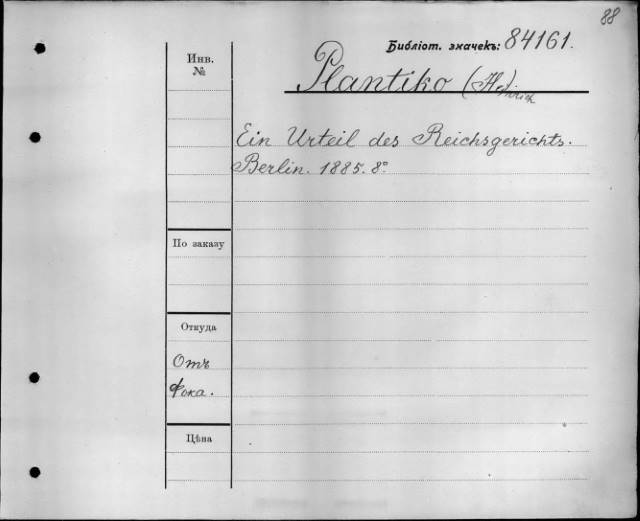 88
Библіот. значекъ: 84161.
Инв.
№
Plantiko (Heinrich
Ein Urteil des Reichsgerichts.
Berlin. 1885. 8°
По заказу
Откуда
Отъ
Фока.
Цѣна